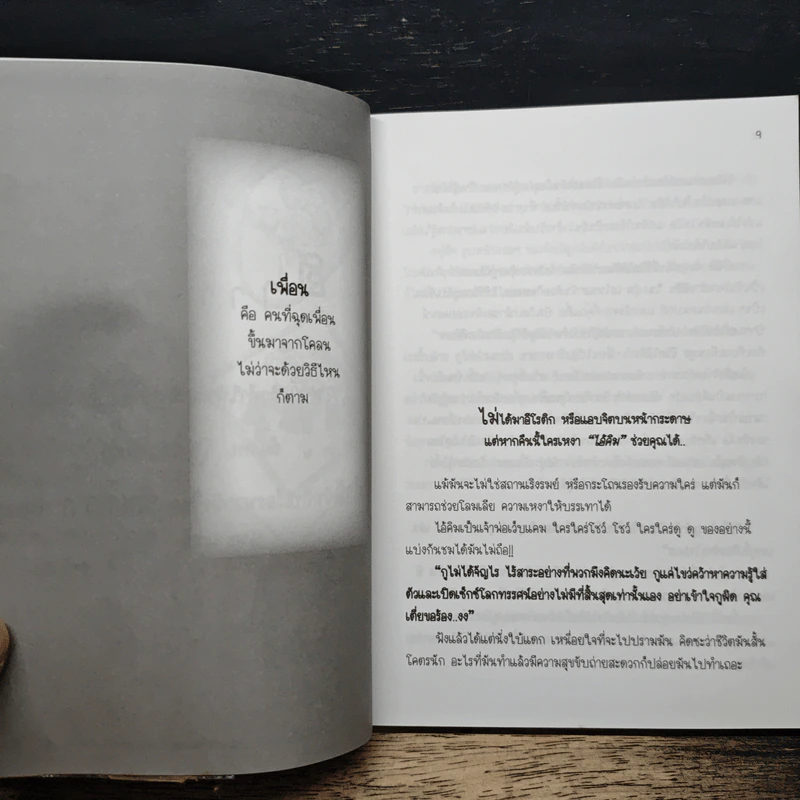 เพื่อน
คือ คนที่ฉุดเพื่อน
ขึ้นมาจากโคลน
ไม่ว่าจะด้วยวิธีไหน
ก็ตาม
9
ไม่ได้มาอีโรติก หรือแอบจิตบนหน้ากระดาษ
แต่หากคืนนี้ใครเหงา “ไอ้คิม” ช่วยคุณได้..
แม้มันจะไม่ใช่สถานเริงรมย์ หรือกระโถนรองรับความใคร่ แต่มันก็
สามารถช่วยโลมเลีย ความเหงาให้บรรเทาได้
ไอ้คิมเป็นเจ้าพ่อเว็บแคม ใครใคร่โชว์ โชว์ ใครใคร่ดู ดู ของอย่างนี้
แบ่งกันชมได้มันไม่ถือ!!
“กูไม่ได้จัญไร ไร้สาระอย่างที่พวกมึงคิดนะเว้ย กูแค่ไขว่คว้าหาความรู้ใส่
ตัวและเปิดเซ็กซ์โลกทรรศน์อย่างไม่มีที่สิ้นสุดเท่านั้นเอง อย่าเข้าใจกูผิด คุณ
เตี่ยขอร้อง..งง”
ฟังแล้วได้แต่นั่งใบ้แดก เหนื่อยใจที่จะไปปรามมัน คิดซะว่าชีวิตมันสั้น
โคตรนัก อะไรที่มันทำแล้วมีความสุขขับถ่ายสะดวกก็ปล่อยมันไปทำเถอะ